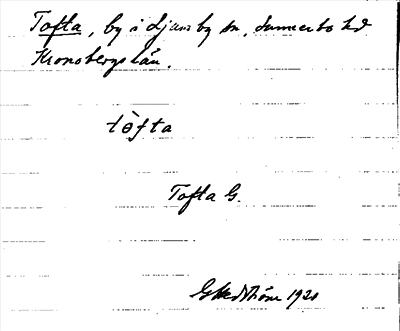 Tofta, by i Ljunby sn, Sunnerbo hd
Kronobergs län.
tòfta
Tofta G.
G Hedström 1920